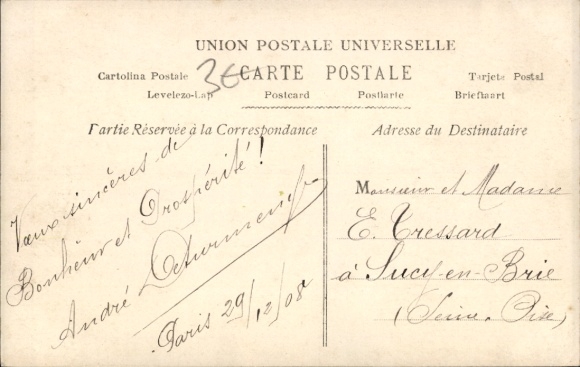 UNION POSTALE UNIVERSELLE
3€ CARTE POSTALE
Cartolina Postale
Tarjeta Postal
Levelezo-Lap
Postcard
Postkarte
Briefkaart
Partie Réservée à la Correspondance
Adresse du Destinataire
Vœux sincères de
Bonheur et Prospérité !
André
Paris 29/12/08
Monsieur et Madame
E. Tressard
à Sucy-en-Brie
(Seine-Oise)